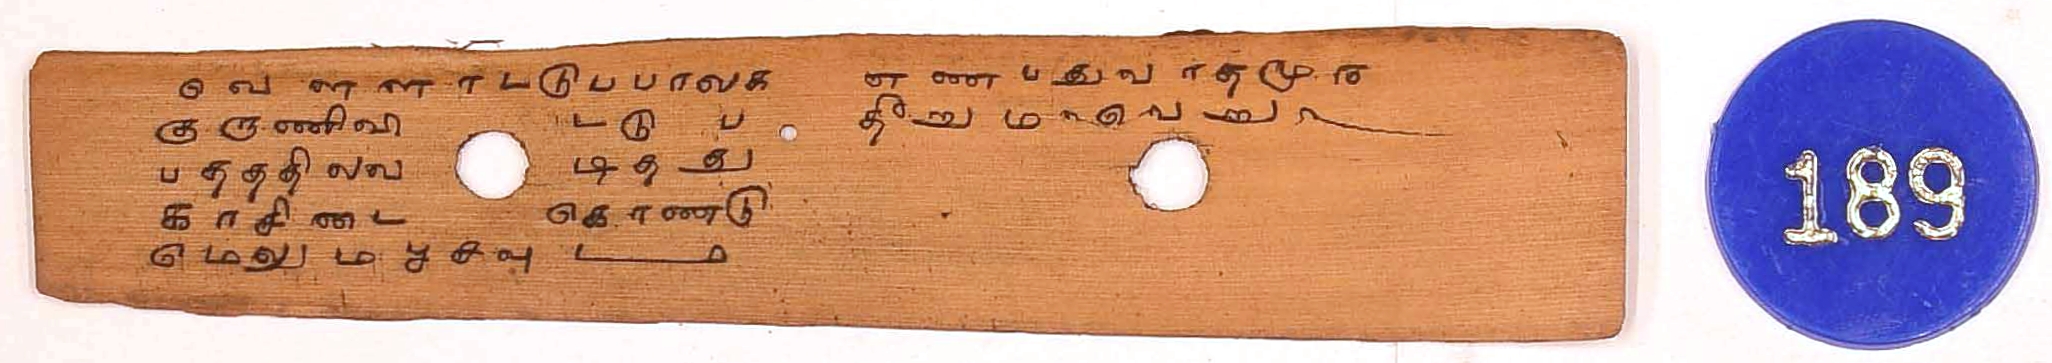 வெளளாடடுபபாலக எணபதுவாதமு
குருணிவி டடுப திறுமாவெறு
பததிலவ டிதது
காசிடை கொணடு
மெலுமபூசவு ட ம
189